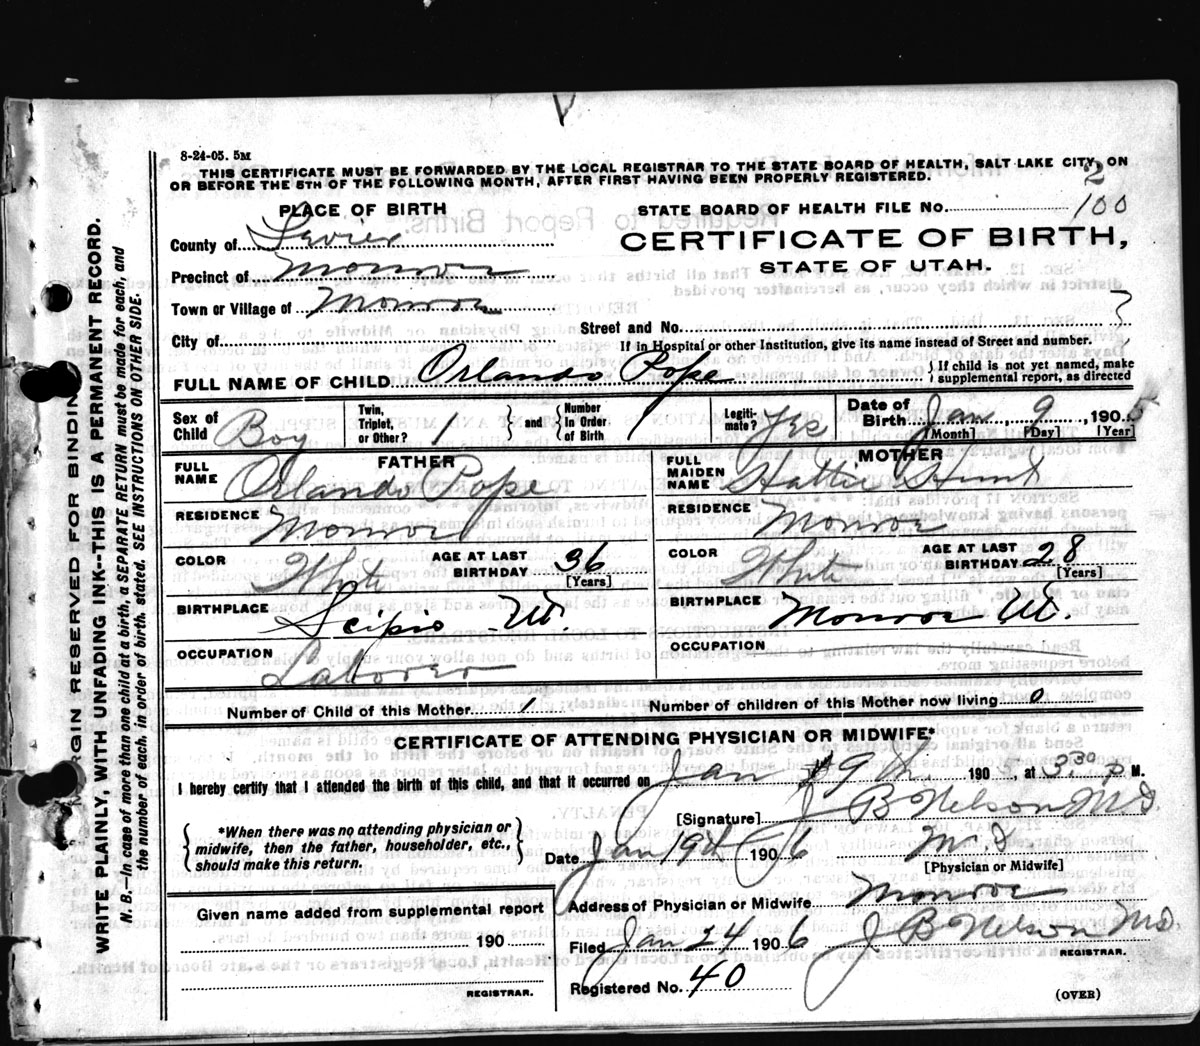 8-24-05. 5M
THIS CERTIFICATE MUST BE FORWARDED BY THE LOCAL REGISTRAR TO THE STATE BOARD OF HEALTH, SALT LAKE CITY, ON
OR BEFORE THE 5TH OF THE FOLLOWING MONTH, AFTER FIRST HAVING BEEN PROPERLY REGISTERED.
2
PLACE OF BIRTH
STATE BOARD OF HEALTH FILE No. 100
County of Sevier
CERTIFICATE OF BIRTH,
STATE OF UTAH.
Precinct of Monroe
Town or Village of Monroe
Street and No.
City of
If in Hospital or other Institution, give its name instead of Street and number.
FULL NAME OF CHILD Orlando Pope
If child is not yet named, make
supplemental report, as directed
Sex of Child Boy
Twin, Triplet, or Other? 1 and Number In Order of Birth 1
Legiti- mate? Yes
Date of Birth Jan 9 1905
[Month] [Day] [Year]
FATHER
FULL NAME Orlando Pope
RESIDENCE Monroe
COLOR White AGE AT LAST BIRTHDAY 36 [Years]
BIRTHPLACE Scipio Ut.
OCCUPATION Laborer
MOTHER
FULL MAIDEN NAME Hattie Hunt
RESIDENCE Monroe
COLOR White AGE AT LAST BIRTHDAY 28 [Years]
BIRTHPLACE Monroe Ut.
OCCUPATION
Number of Child of this Mother 1 Number of children of this Mother now living 0
CERTIFICATE OF ATTENDING PHYSICIAN OR MIDWIFE*
I hereby certify that I attended the birth of this child, and that it occurred on Jan 9th 190 , at 3.30 P M.
[Signature] J B Nelson M.D.
*When there was no attending physician or
midwife, then the father, householder, etc.,
should make this return.
Date Jan 19th 1906 M D
[Physician or Midwife]
Address of Physician or Midwife Monroe
Given name added from supplemental report
190
REGISTRAR.
Filed Jan 24 1906 J. B Nelson M.D.
REGISTRAR.
Registered No. 40
(OVER)
MARGIN RESERVED FOR BINDING
WRITE PLAINLY, WITH UNFADING INK--THIS IS A PERMANENT RECORD.
N. B.—In case of more than one child at a birth, a SEPARATE RETURN must be made for each, and
the number of each, in order of birth, stated. SEE INSTRUCTIONS ON OTHER SIDE.